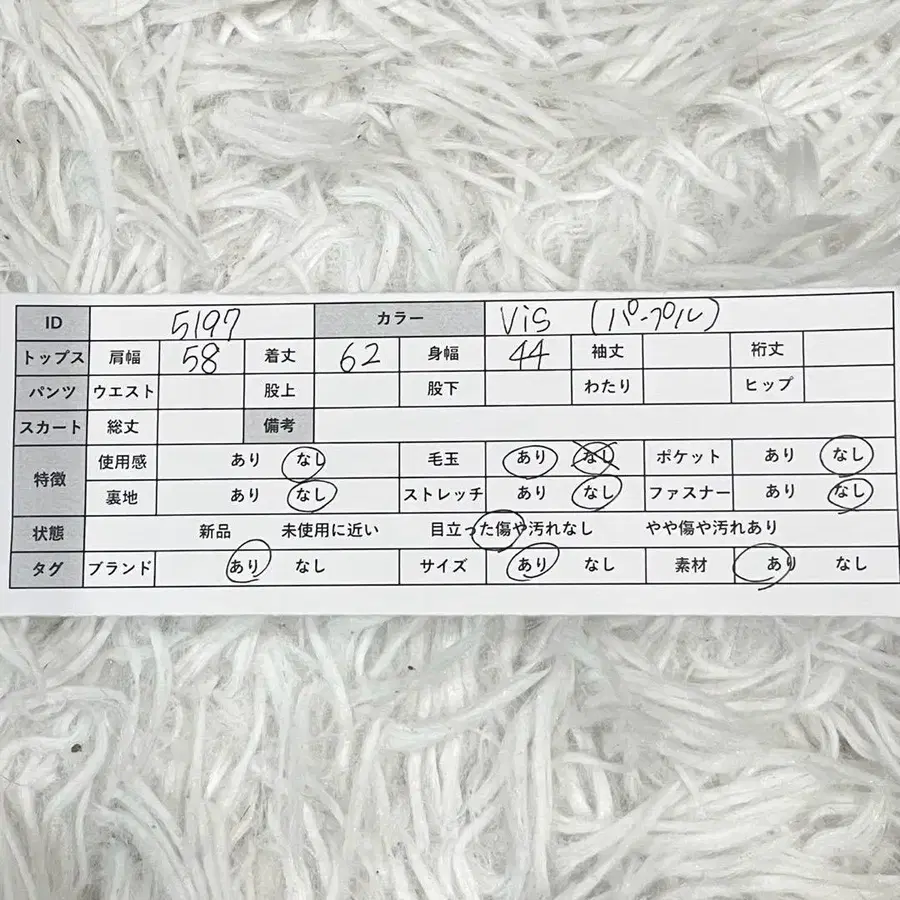 ID 5197 カラー Vis (パープル)
トップス 肩幅 58 着丈 62 身幅 44 袖丈 裄丈
パンツ ウエスト 股上 股下 わたり ヒップ
スカート 総丈 備考
特徴 使用感 あり なし 毛玉 あり なし ポケット あり なし
裏地 あり なし ストレッチ あり なし ファスナー あり なし
状態 新品 未使用に近い 目立った傷や汚れなし やや傷や汚れあり
タグ ブランド あり なし サイズ あり なし 素材 あり なし